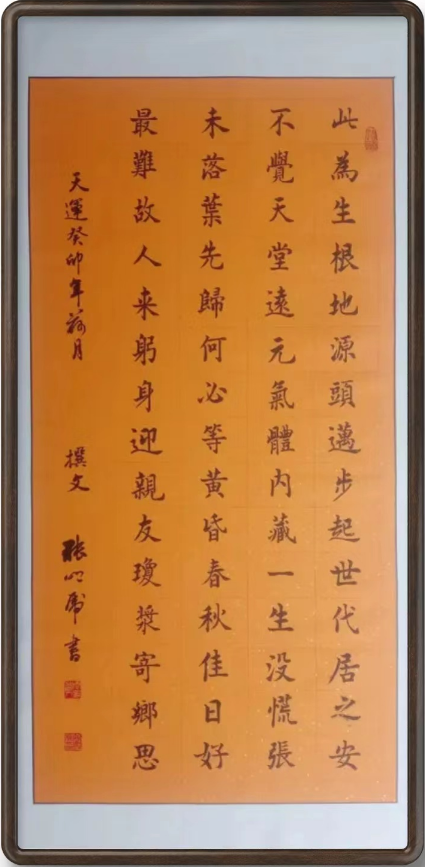 此為生根地源頭邁步起世代居之安
不覺天堂遠元氣體內藏一生没慌張
未落葉先歸何必等黃昏春秋佳日好
最難故人来躬身迎親友瓊漿寄鄉思
天運癸卯年荷月
撰文 張心虎書